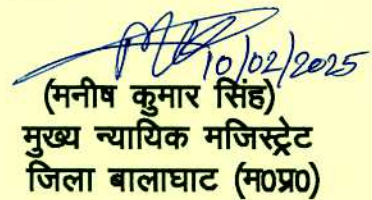 10/02/2025
(मनीष कुमार सिंह)
मुख्य न्यायिक मजिस्ट्रेट
जिला बालाघाट (म0प्र0)